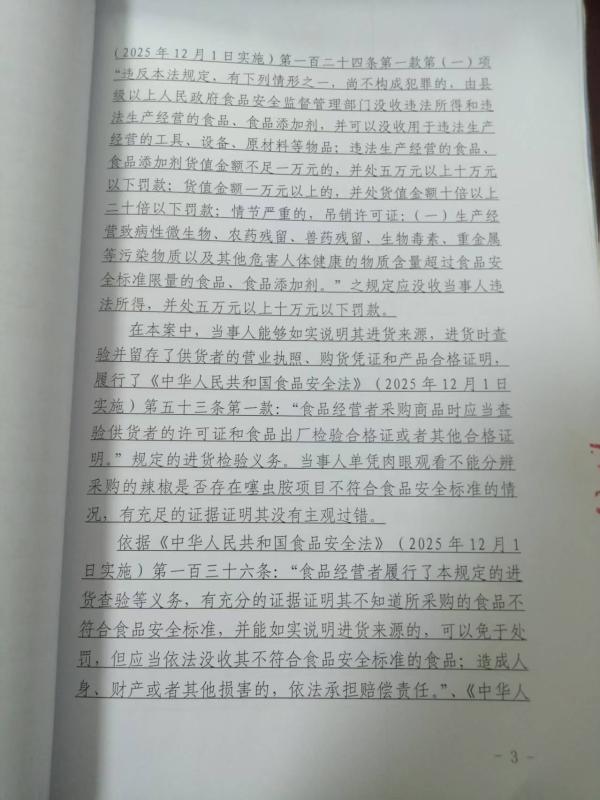 （2025年12月1日实施）第一百二十四条第一款第（一）项
“违反本法规定，有下列情形之一，尚不构成犯罪的，由县
级以上人民政府食品安全监督管理部门没收违法所得和违
法生产经营的食品、食品添加剂，并可以没收用于违法生产
经营的工具、设备、原材料等物品；违法生产经营的食品、
食品添加剂货值金额不足一万元的，并处五万元以上十万元
以下罚款；货值金额一万元以上的，并处货值金额十倍以上
二十倍以下罚款；情节严重的，吊销许可证：（一）生产经
营致病性微生物、农药残留、兽药残留、生物毒素、重金属
等污染物质以及其他危害人体健康的物质含量超过食品安
全标准限量的食品、食品添加剂。”之规定应没收当事人违
法所得，并处五万元以上十万元以下罚款。
在本案中，当事人能够如实说明其进货来源，进货时查
验并留存了供货者的营业执照、购货凭证和产品合格证明，
履行了《中华人民共和国食品安全法》（2025年12月1日
实施）第五十三条第一款：“食品经营者采购商品时应当查
验供货者的许可证和食品出厂检验合格证或者其他合格证
明。”规定的进货检验义务。当事人单凭肉眼观看不能分辨
采购的辣椒是否存在噻虫胺项目不符合食品安全标准的情
况，有充足的证据证明其没有主观过错。
依据《中华人民共和国食品安全法》（2025年12月1
日实施）第一百三十六条：“食品经营者履行了本规定的进
货查验等义务，有充分的证据证明其不知道所采购的食品不
符合食品安全标准，并能如实说明进货来源的，可以免于处
罚，但应当依法没收其不符合食品安全标准的食品；造成人
身、财产或者其他损害的，依法承担赔偿责任。”、《中华人
- 3 -